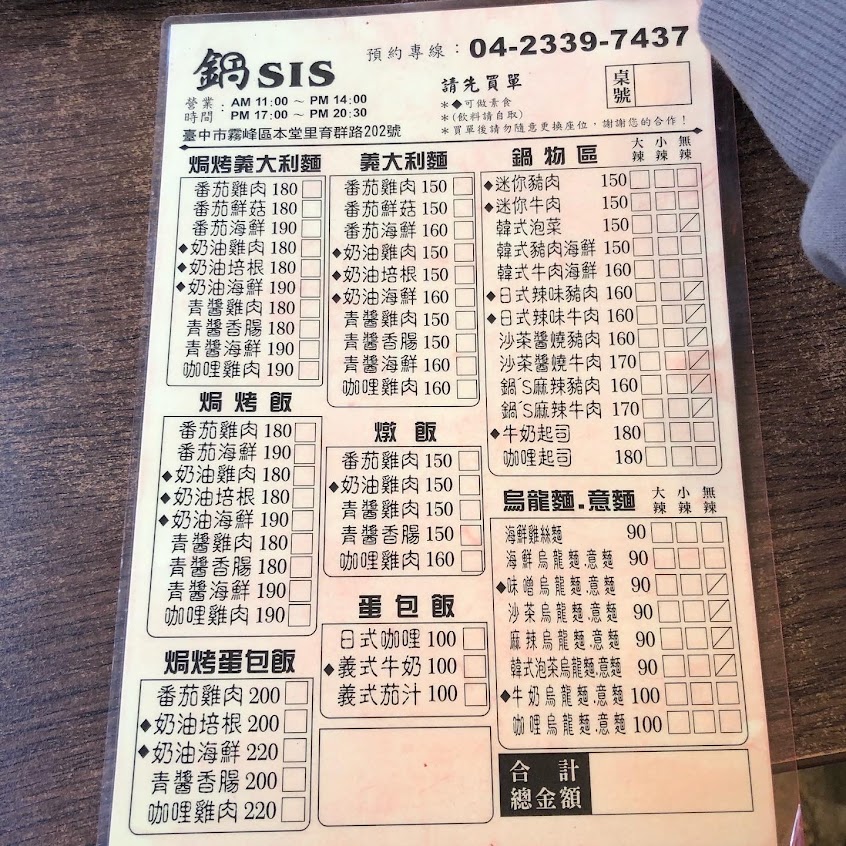 鍋SIS
預約專線：04-2339-7437
營業時間：AM 11:00 ～ PM 14:00
PM 17:00 ～ PM 20:30
請先買單
＊◆可做素食
＊(飲料請自取)
＊買單後請勿隨意更換座位，謝謝您的合作！
桌號
臺中市霧峰區本堂里育群路202號
焗烤義大利麵
番茄雞肉 180
番茄鮮菇 180
番茄海鮮 190
◆奶油雞肉 180
◆奶油培根 180
◆奶油海鮮 190
青醬雞肉 180
青醬香腸 180
青醬海鮮 190
咖哩雞肉 190
焗烤飯
番茄雞肉 180
番茄海鮮 190
◆奶油雞肉 180
◆奶油培根 180
◆奶油海鮮 190
青醬雞肉 180
青醬香腸 180
青醬海鮮 190
咖哩雞肉 190
焗烤蛋包飯
番茄雞肉 200
◆奶油培根 200
◆奶油海鮮 220
青醬香腸 200
咖哩雞肉 220
義大利麵
番茄雞肉 150
番茄鮮菇 150
番茄海鮮 160
◆奶油雞肉 150
◆奶油培根 150
◆奶油海鮮 160
青醬雞肉 150
青醬香腸 150
青醬海鮮 160
咖哩雞肉 160
燉飯
番茄雞肉 150
◆奶油雞肉 150
青醬雞肉 150
青醬香腸 150
咖哩雞肉 160
蛋包飯
日式咖哩 100
◆義式牛奶 100
義式茄汁 100
鍋物區 大辣 小辣 無辣
◆迷你豬肉 150
◆迷你牛肉 150
韓式泡菜 150
韓式豬肉海鮮 150
韓式牛肉海鮮 160
◆日式辣味豬肉 160
◆日式辣味牛肉 160
沙茶醬燒豬肉 160
沙茶醬燒牛肉 170
鍋´S麻辣豬肉 160
鍋´S麻辣牛肉 170
◆牛奶起司 180
咖哩起司 180
烏龍麵.意麵 大辣 小辣 無辣
海鮮雞絲麵 90
海鮮烏龍麵.意麵 90
◆味噌烏龍麵.意麵 90
沙茶烏龍麵.意麵 90
麻辣烏龍麵.意麵 90
韓式泡茶烏龍麵.意麵 90
◆牛奶烏龍麵.意麵 100
咖哩烏龍麵.意麵 100
合計
總金額